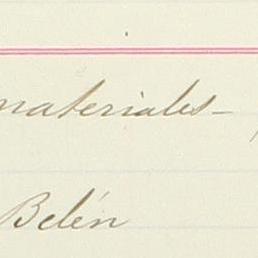 materiales -
Belén